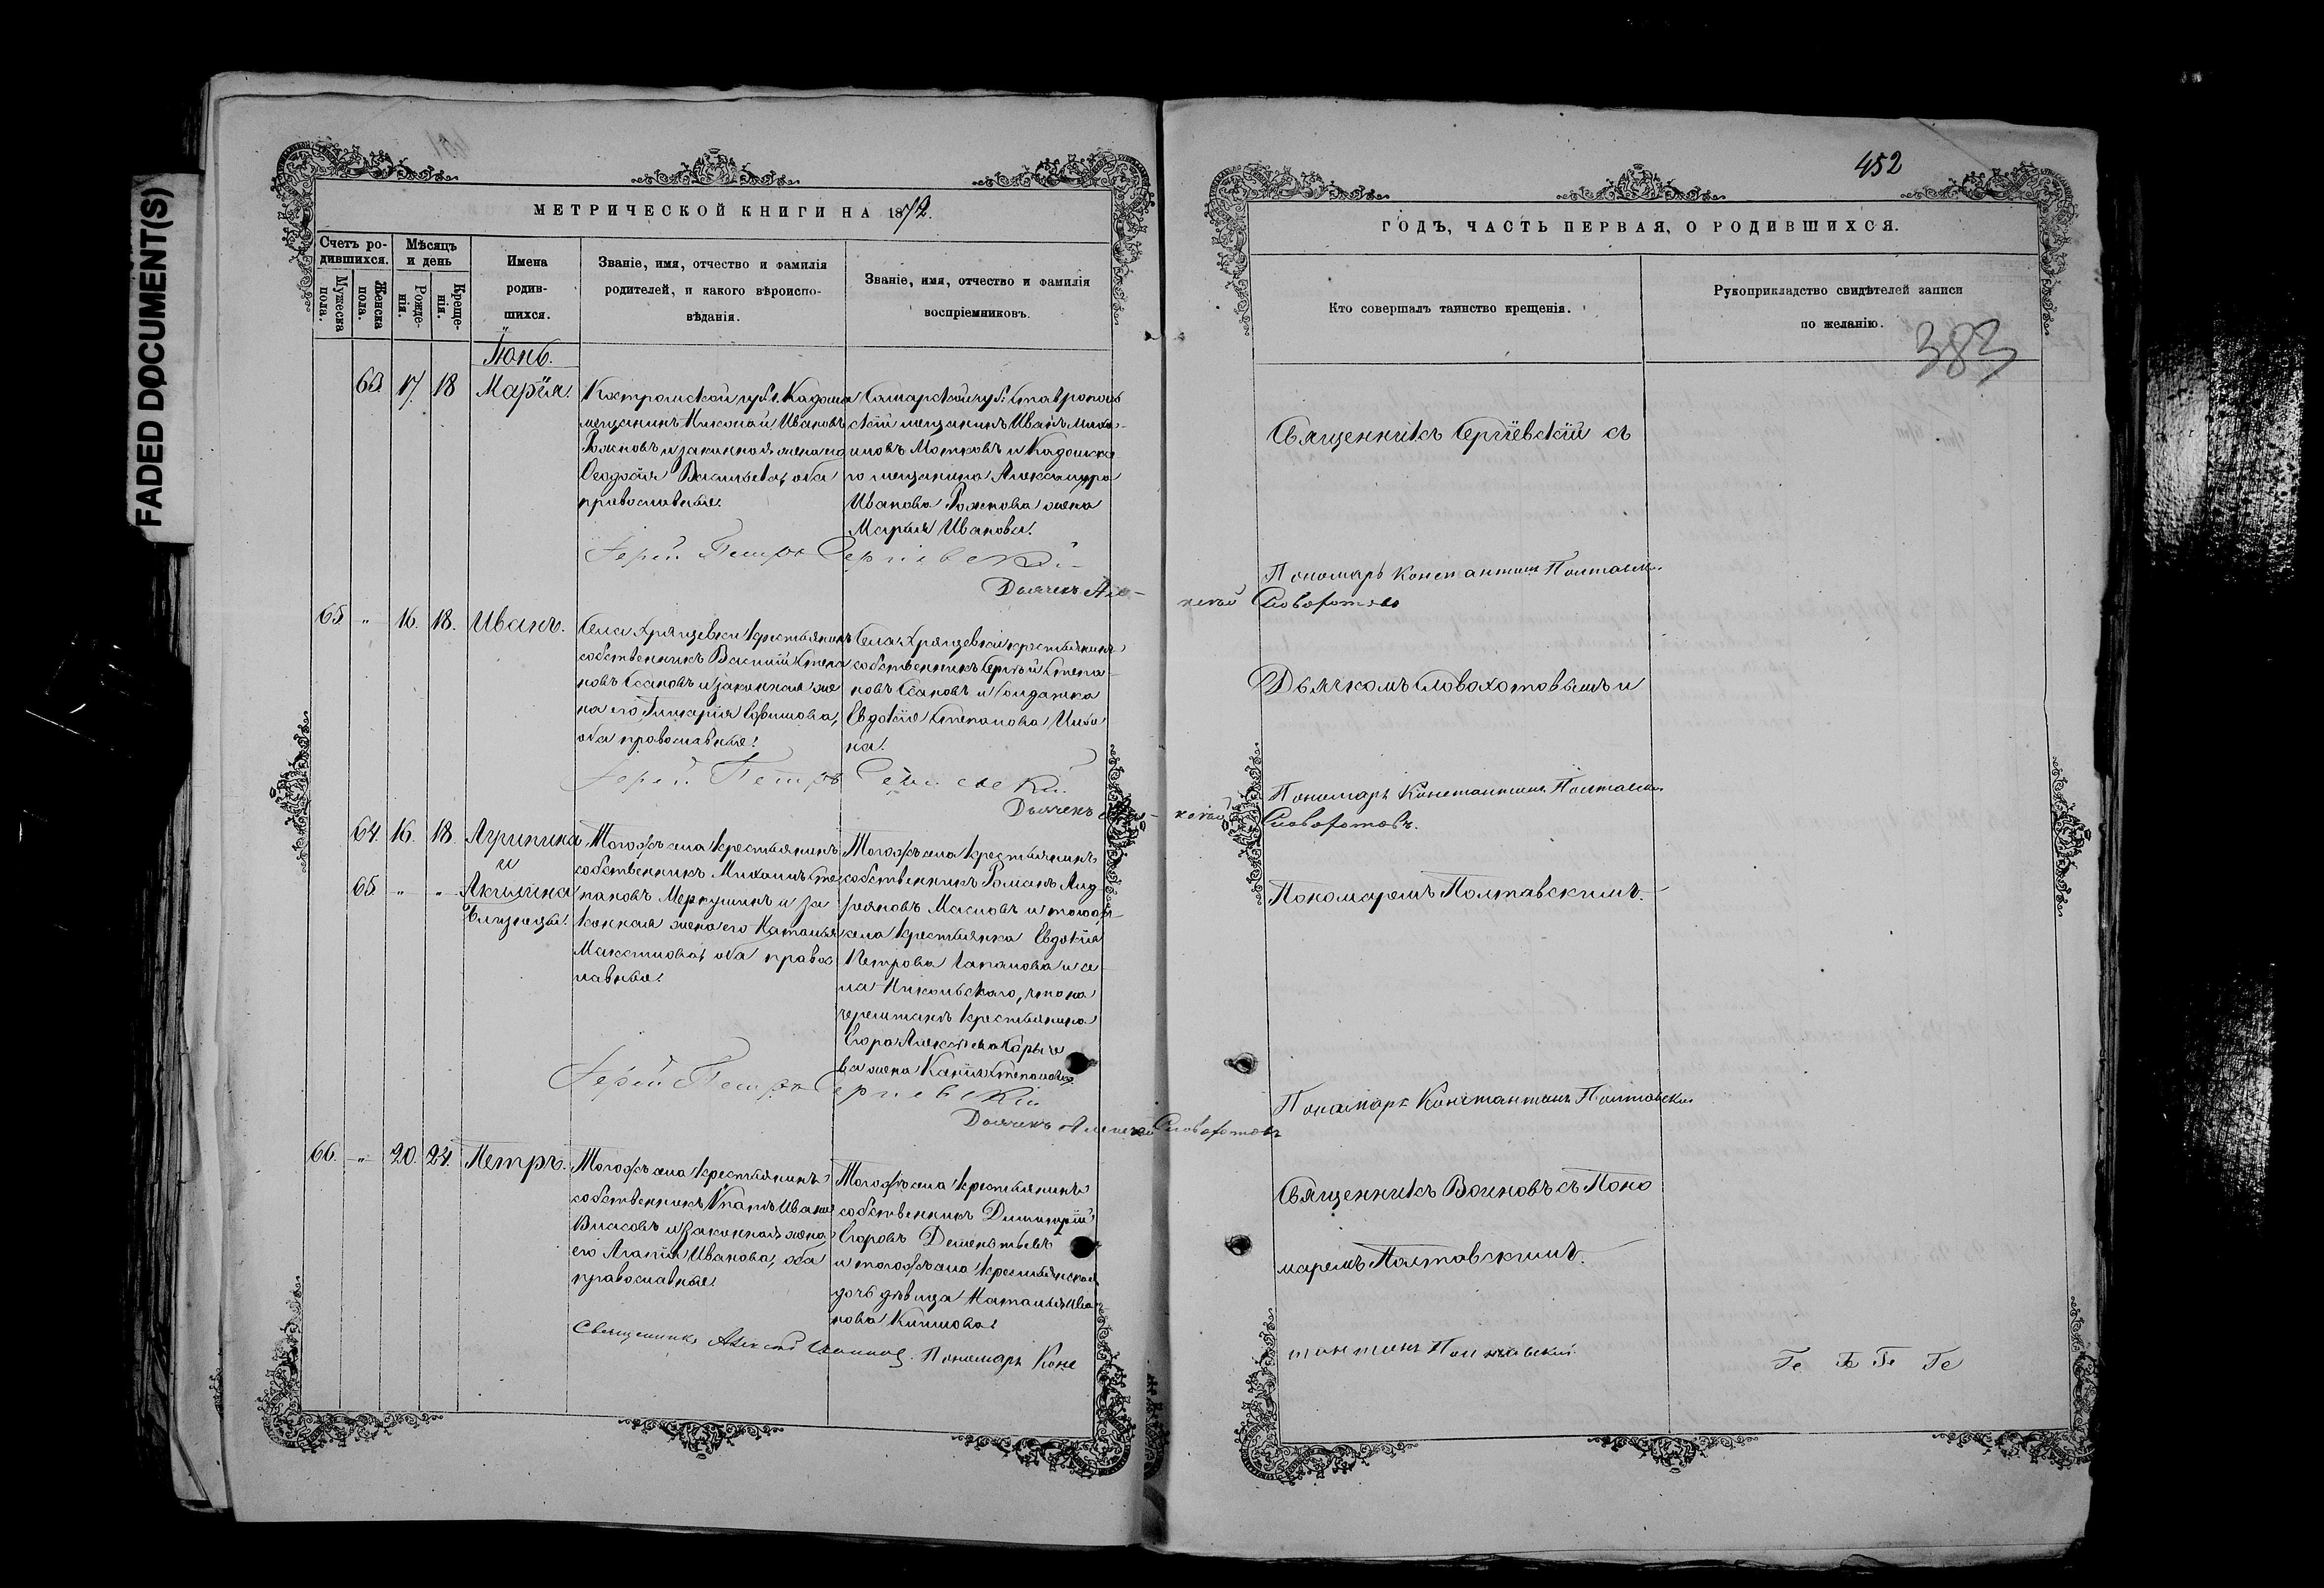 FADED DOCUMENT(S)
МЕТРИЧЕСКОЙ КНИГИ НА 1872.
Счетъ ро-
дившихся.
Мужеска
пола.
Женска
пола.
Мѣсяцъ
и день
Рожде-
нія.
Креще-
нія.
Имена
родив-
шихся.
Званіе, имя, отчество и фамилія
родителей, и какого вѣроиспо-
вѣданія.
Званіе, имя, отчество и фамилія
воспріемниковъ.
Іюнь.
63. 17 18 Марія.
Костромской губ. г. Кадома
мещанинъ Николай Ивановъ
Рожновъ и законная жена его
Ѳеодосія Васильева, оба
православные.
Самарской губ. Ставрополь
скій мещанинъ Иванъ
и Кадомска
го мещанина Александра
Иванова Рожнова жена
Марья Иванова.
Іерей Петръ Сергіевскій
Дьячекъ Але-
65 " 16. 18. Иванъ.
Села Хрящевки крестьянинъ
собственникъ Василій Степа
новъ Осаповъ и законная же
на его Гликерія Ефимова,
оба православные.
Села Хрящевки крестьянинъ
собственникъ Сергѣй Степа
новъ Осаповъ и солдатка
Евдокія Степанова
на.
Іерей Петръ Сергіевскій
Дьячекъ
64. 16. 18. Агрипина
и
65 " " Акилина
Близнецы.
Тогожъ села крестьянинъ
собственникъ Михаилъ Сте
пановъ Меркушинъ и за
конная жена его Наталья
Максимова, оба правос
лавные.
Тогожъ села крестьянинъ
собственникъ Романъ Анд
реяновъ Масловъ и тогожъ
села крестьянка Евдокія
Петрова и се
ла Никольскаго, что на
черемшанѣ крестьянина
Егора
ва жена Степанова
Іерей Петръ Сергіевскій
Дьячекъ Алексей Словохотовъ
66. " 20. 24. Петръ.
Тогожъ села крестьянинъ
собственникъ Ивановъ
Власовъ и законная жена
его Агапія Иванова, оба
православные.
Тогожъ села крестьянинъ
собственникъ Димитрій
Егоровъ Дементьевъ
и тогожъ села крестьянская
дочь дѣвица Наталья Ива
нова Климова.
Священникъ Александ Воиновъ. Пономарь Конс
452
ГОДЪ, ЧАСТЬ ПЕРВАЯ, О РОДИВШИХСЯ.
Кто совершалъ таинство крещенія.
Рукоприкладство свидѣтелей записи
по желанію.
383
Священникъ Сергіевскій съ
Пономарь Константинъ Полтавскій
ксѣй Словохотовъ
Дьячкомъ Словохотовымъ и
Пономарь Константинъ Полтавскій
ксѣй Словохотовъ.
Пономаремъ Полтавскимъ.
Пономарь Константинъ Полтавскій
Священникъ Воиновъ съ Поно
маремъ Полтавскимъ.
тантинъ Полтавскій.
Ге Ге Ге Ге